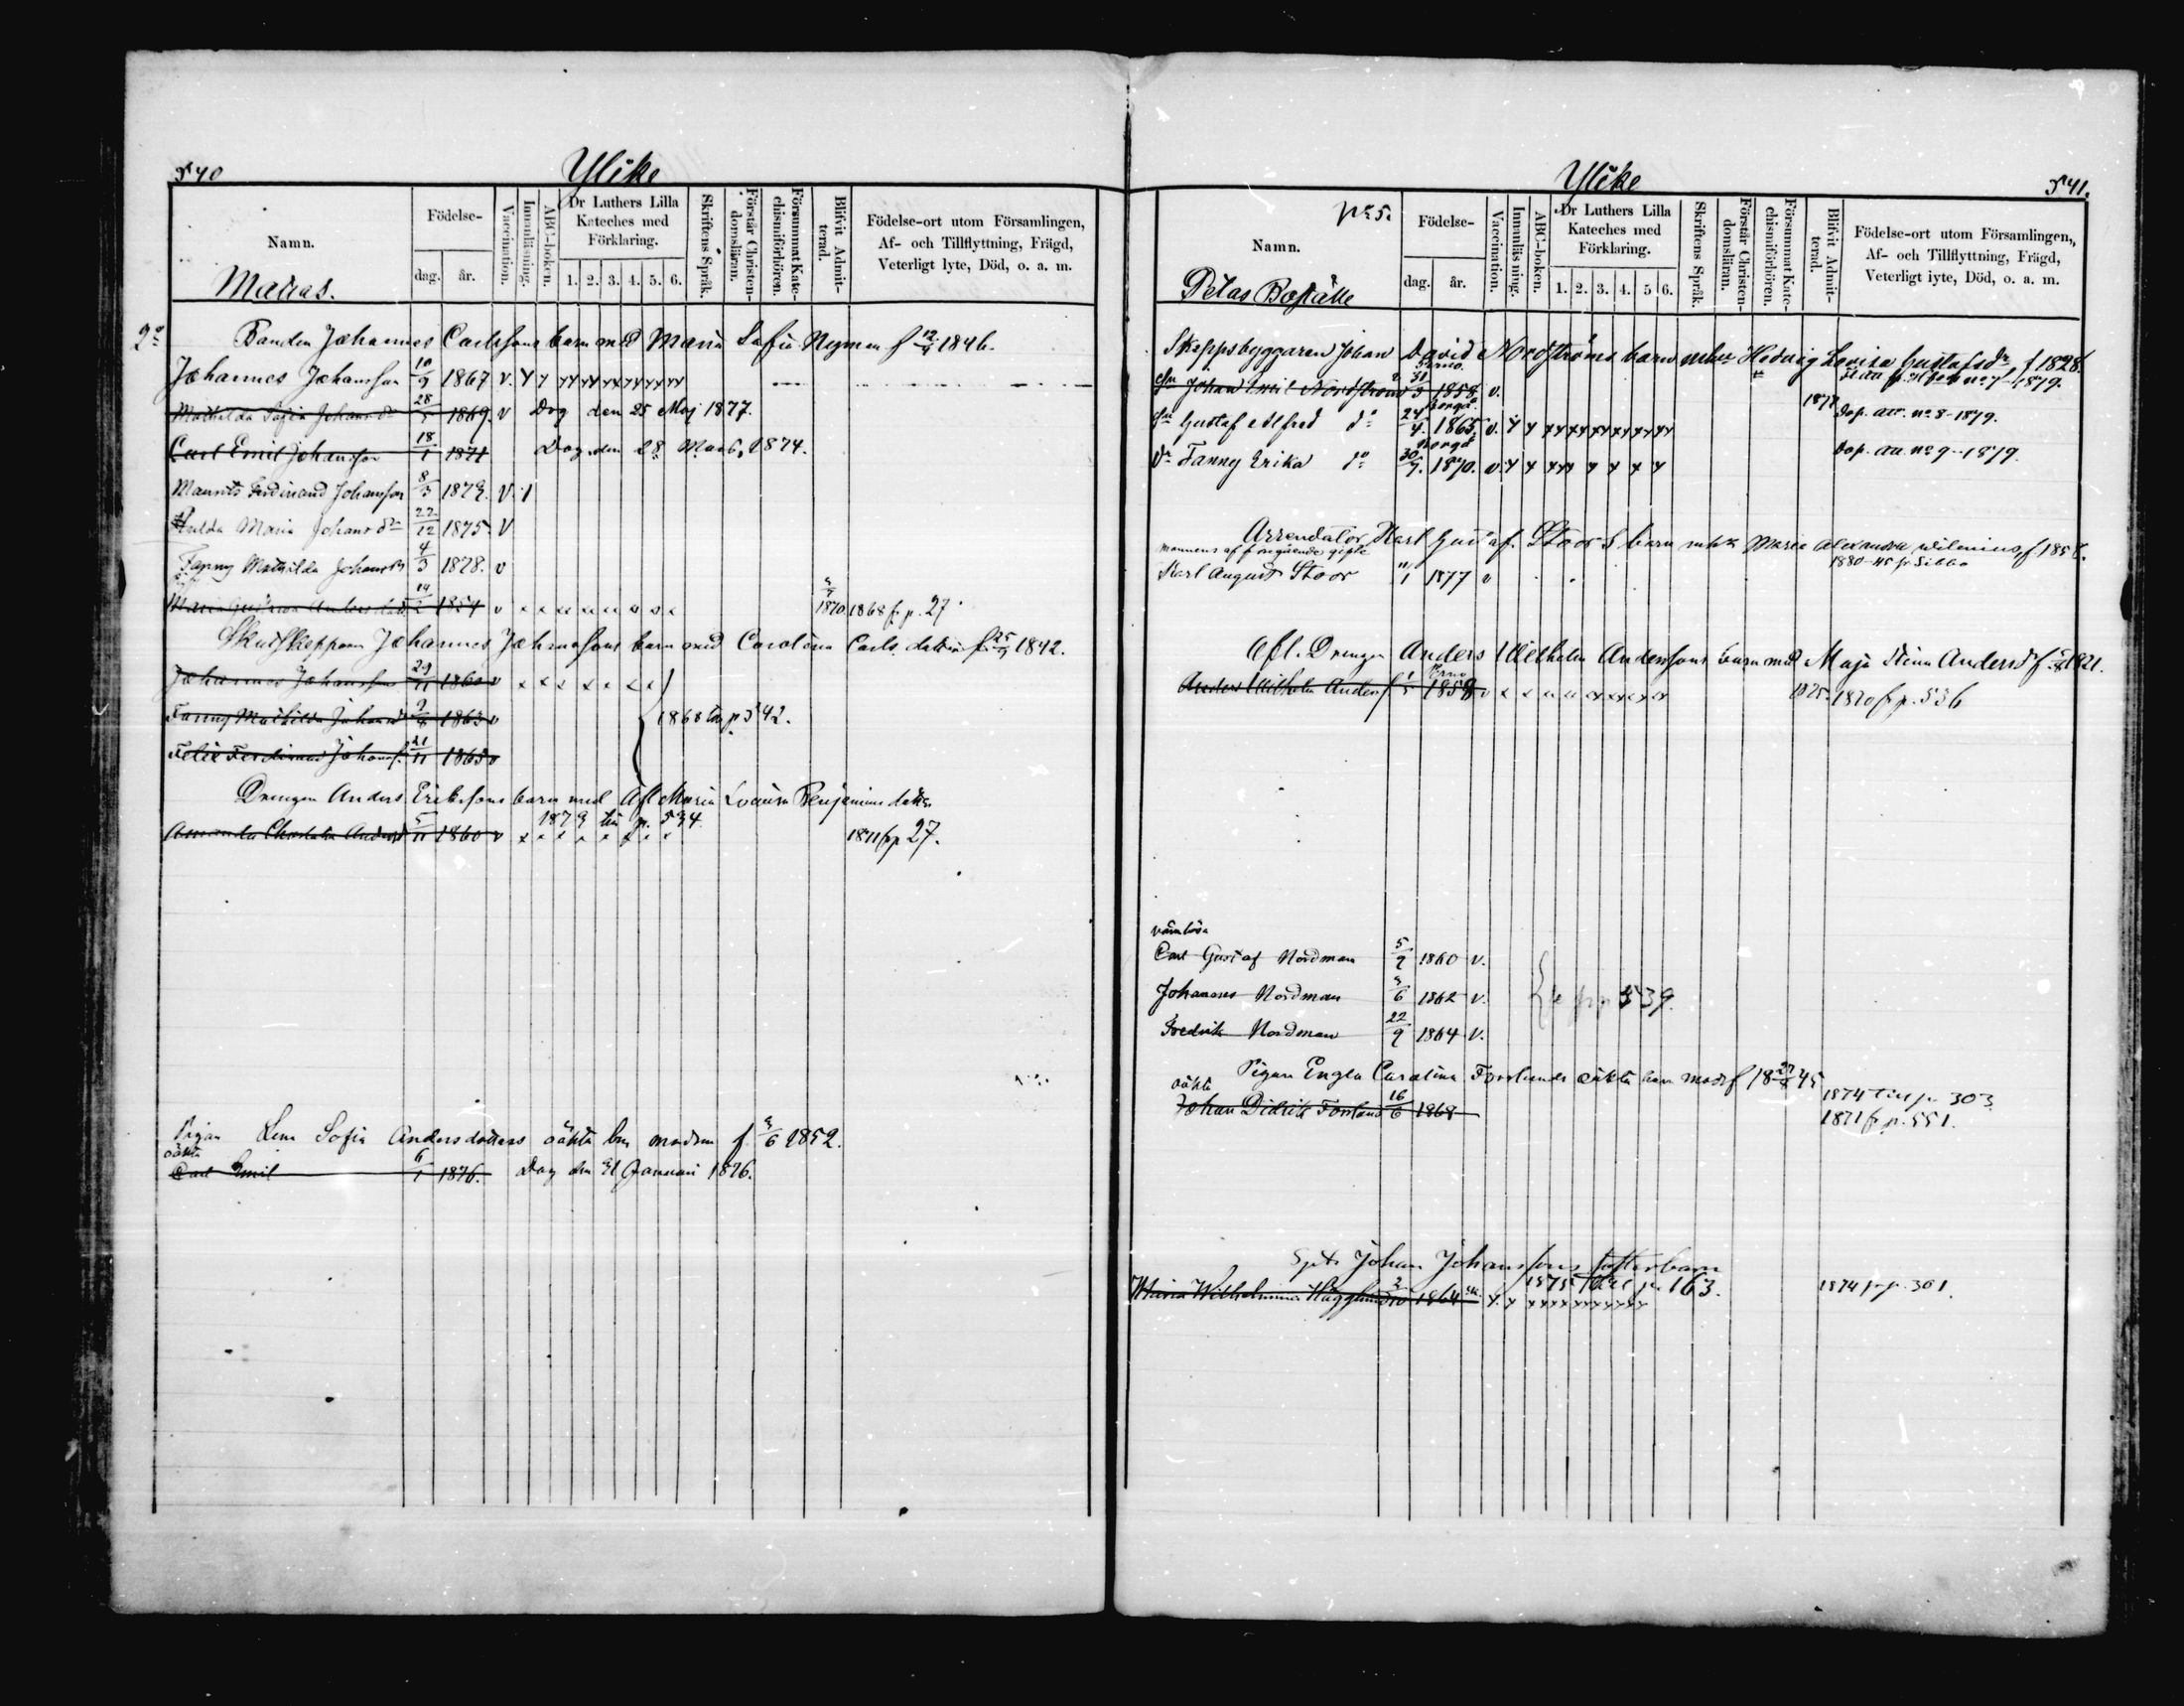 540
Ylike
Namn.
Födelse-
dag. år.
Vaccination.
Innanläsning.
ABC-boken.
Dr Luthers Lilla Kateches med Förklaring.
1. 2. 3. 4. 5. 6.
Skriftens Språk.
Förstår Christendomsläran.
Försummat Katechismiförhören.
Blifvit Admitterad.
Födelse-ort utom Församlingen, Af- och Tillflyttning, Frägd, Veterligt lyte, Död, o. a. m.
Mattas.
2o Bonden Johannes Carlssons barn med Maria Sofia Nyman f 12/4 1846.
Johannes Johansson 10/9 1867 v.
Mathilda Sofia Johansdr 28/5 1869. v Dog den 25 Maj 1877.
Carl Emil Johansson 18/1 1871 Dog den 28 Mars 1874.
Maurits Ferdinand Johansson 8/3 1873. v.
Hulda Maria Johansdr 22/12 1875. v
Fanny Mathilda Johansdr 4/3 1878. v
Maria Andersdotter 1854 v x x x x x x x x x 1870 1868 fr p. 27.
Johannes Johanssons barn med Carolina Carlsdotter f 25/7 1842.
Johannes Johansson 29/11 1860 v x x x x x x x
Fanny Mathilda Johansdr 1863 v 1868 till p 542.
Felix Ferdinand Johanss. 21/11 1865 v
Drengen Anders Erikssons barn med Afl Maria Lovisa Benjaminsdotter
1873 till p. 534
Amanda Charlotta Andersdr 5/11 1860 v x x x x x x x 1871 fr p 27.
Pigan Lena Sofia Andersdotters oäkta barn modren f 3/6 1852.
oäkta
Carl Emil 6/1 1876. Dog den 31 Januari 1876.
Ylike
541.
No 5.
Namn.
Födelse-
dag. år.
Vaccination.
Innanläsning.
ABC-boken.
Dr Luthers Lilla Kateches med Förklaring.
1. 2. 3. 4. 5 6.
Skriftens Språk.
Förstår Christendomsläran.
Försummat Katechismiförhören.
Blifvit Admitterad.
Födelse-ort utom Församlingen, Af- och Tillflyttning, Frägd, Veterligt lyte, Död, o. a. m.
Petas Boställe
Skeppsbyggaren Johan David Nordströms barn mhu Hedvig Lovisa Gustafsdr f 1828.
Perno.
Sn Johan Emil Nordström 31/3 1858. v. 1879.
Borgå.
Sn Gustaf Alfred do 24/4. 1865. v. Dop. att. no 8-1879.
Borgå
Dr Fanny Erika do 30/7. 1870. v. Dop. att no 9-1879.
Arrendator Karl Gustaf Stoors barn mhu Maria Alexandra Wilenius f 1858.
mannens af föregående gifte
1880-45 fr Sibbo
Karl August Stoor 11/1 1877 v
Afl. Drengen Anders Wilhelm Anderssons barn med Maja Stina Andersdr f 1821.
Perno
Anders Wilhelm Anderss 1/5 1858 v 1875. 1870 fr p. 536
värnlösa
Carl Gustaf Nordman 5/2 1860 v.
Johannes Nordman 3/6 1862 v. p 539.
Fredrik Nordman 22/9 1864 v.
Pigan Engla Carolina Forslunds oäkta barn modr f 18 27/8 45
oäkta
Johan Didrik Forslund 16/6 1868 1874 till p. 303
1871 fr p. 551.
Johan Johanssons fosterbarn
1875 till p. 163.
Maria Wilhelmina Hägglund 1864 1874 fr p. 301.